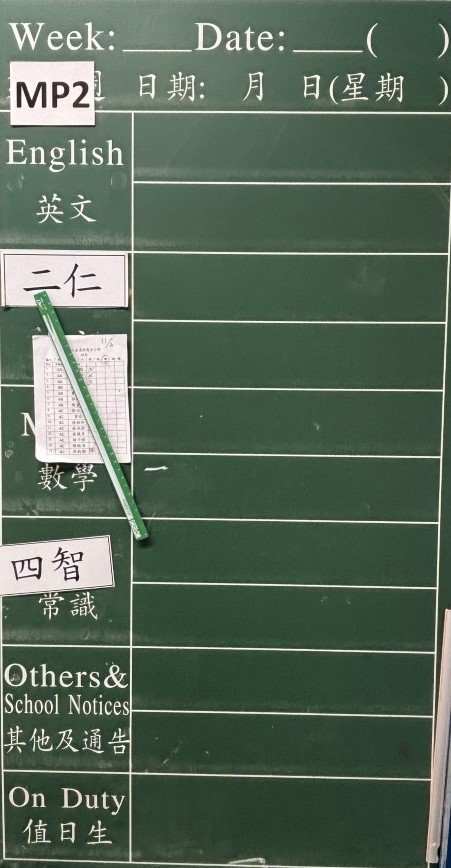 Week: Date: ( )
MP2 日期: 月 日(星期 )
English
英文
二仁
11/2
數學
四智
常識
Others&
School Notices
其他及通告
On Duty
值日生